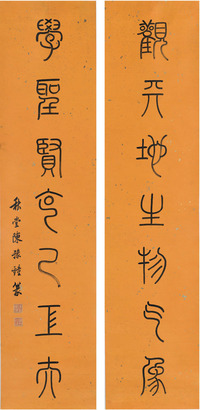 觀天地生物气像
學聖賢克己工夫
秋堂陳豫鍾篆